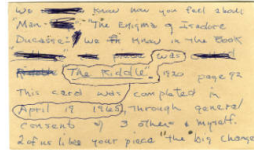 We know how you feel about
Man. "The Enigma of Isadore
Ducasse". We know in the Book
was
"The Riddle" 1920 page 92
This card was completed in
April 19 1965, through general
consent of 3 others & myself.
2 of us like your piece "the big change